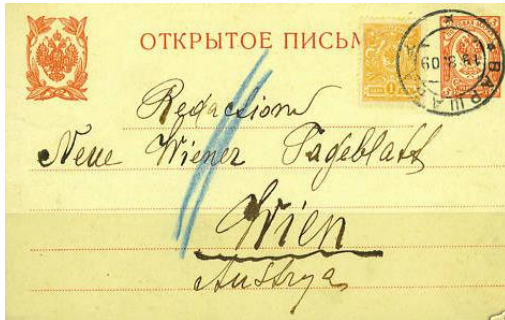 ОТКРЫТОЕ ПИСЬМ
ВАРШАВА
19.8.09
Redaction
Neue Wiener Tageblatt
Wien
Austrya